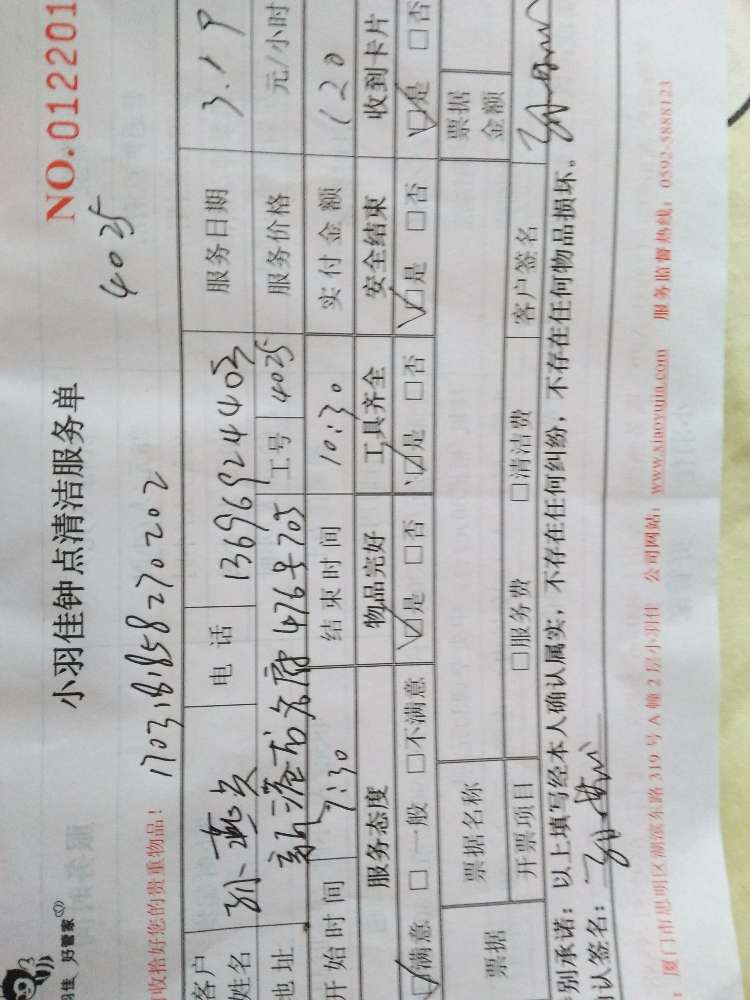 羽佳 好管家
小羽佳钟点清洁服务单
NO.0122201
收拾好您的贵重物品!
1703181858270202
4025
客户姓名
电话 13696924403 服务日期 3.19
地址 476号705 工号 4025 服务价格 元/小时
开始时间 7:30 结束时间 10:30 实付金额 120
服务态度 物品完好 工具齐全 安全结束 收到卡片
☑满意 □一般 □不满意 ☑是 □否 ☑是 □否 ☑是 □否 ☑是 □否
票据 票据名称 票据金额
开票项目 □服务费 □清洁费 客户签名
别承诺:以上填写经本人确认属实,不存在任何纠纷,不存在任何物品损坏。
认签名:
厦门市思明区湖滨东路 319 号 A 幢 2 层小羽佳 公司网站:www.xiaoyujia.com 服务监督热线:0592-5888123